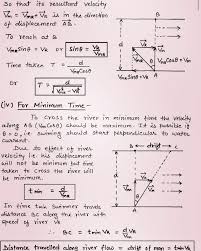 So that its resultant velocity
V⃗m = V⃗mR + V⃗R is in the direction
of displacement A⃗B.
To reach at B
VmR sinθ = VR or sinθ = VR/VmR
Time taken T = d/VmR cosθ
Or T = d/√(V²mR - V²R)
(iv) For Minimum Time -
To cross the river in minimum time the velocity
along AB (VmR cosθ) should be maximum. It is possible if
θ = 0, i.e. swimming should start perpendicular to water
current.
Due to effect of river
velocity i.e. his displacement
will not be minimum but time
taken to cross the river will
be minimum.
tmin = d/VmR
In time tmin swimmer travels
distance BC along the river with
speed of river VR
∴ BC = VR tmin
Distance travelled along river flow = drift of man = tmin VR
B
d
A
VR
B ← drift → C
d
A
VR